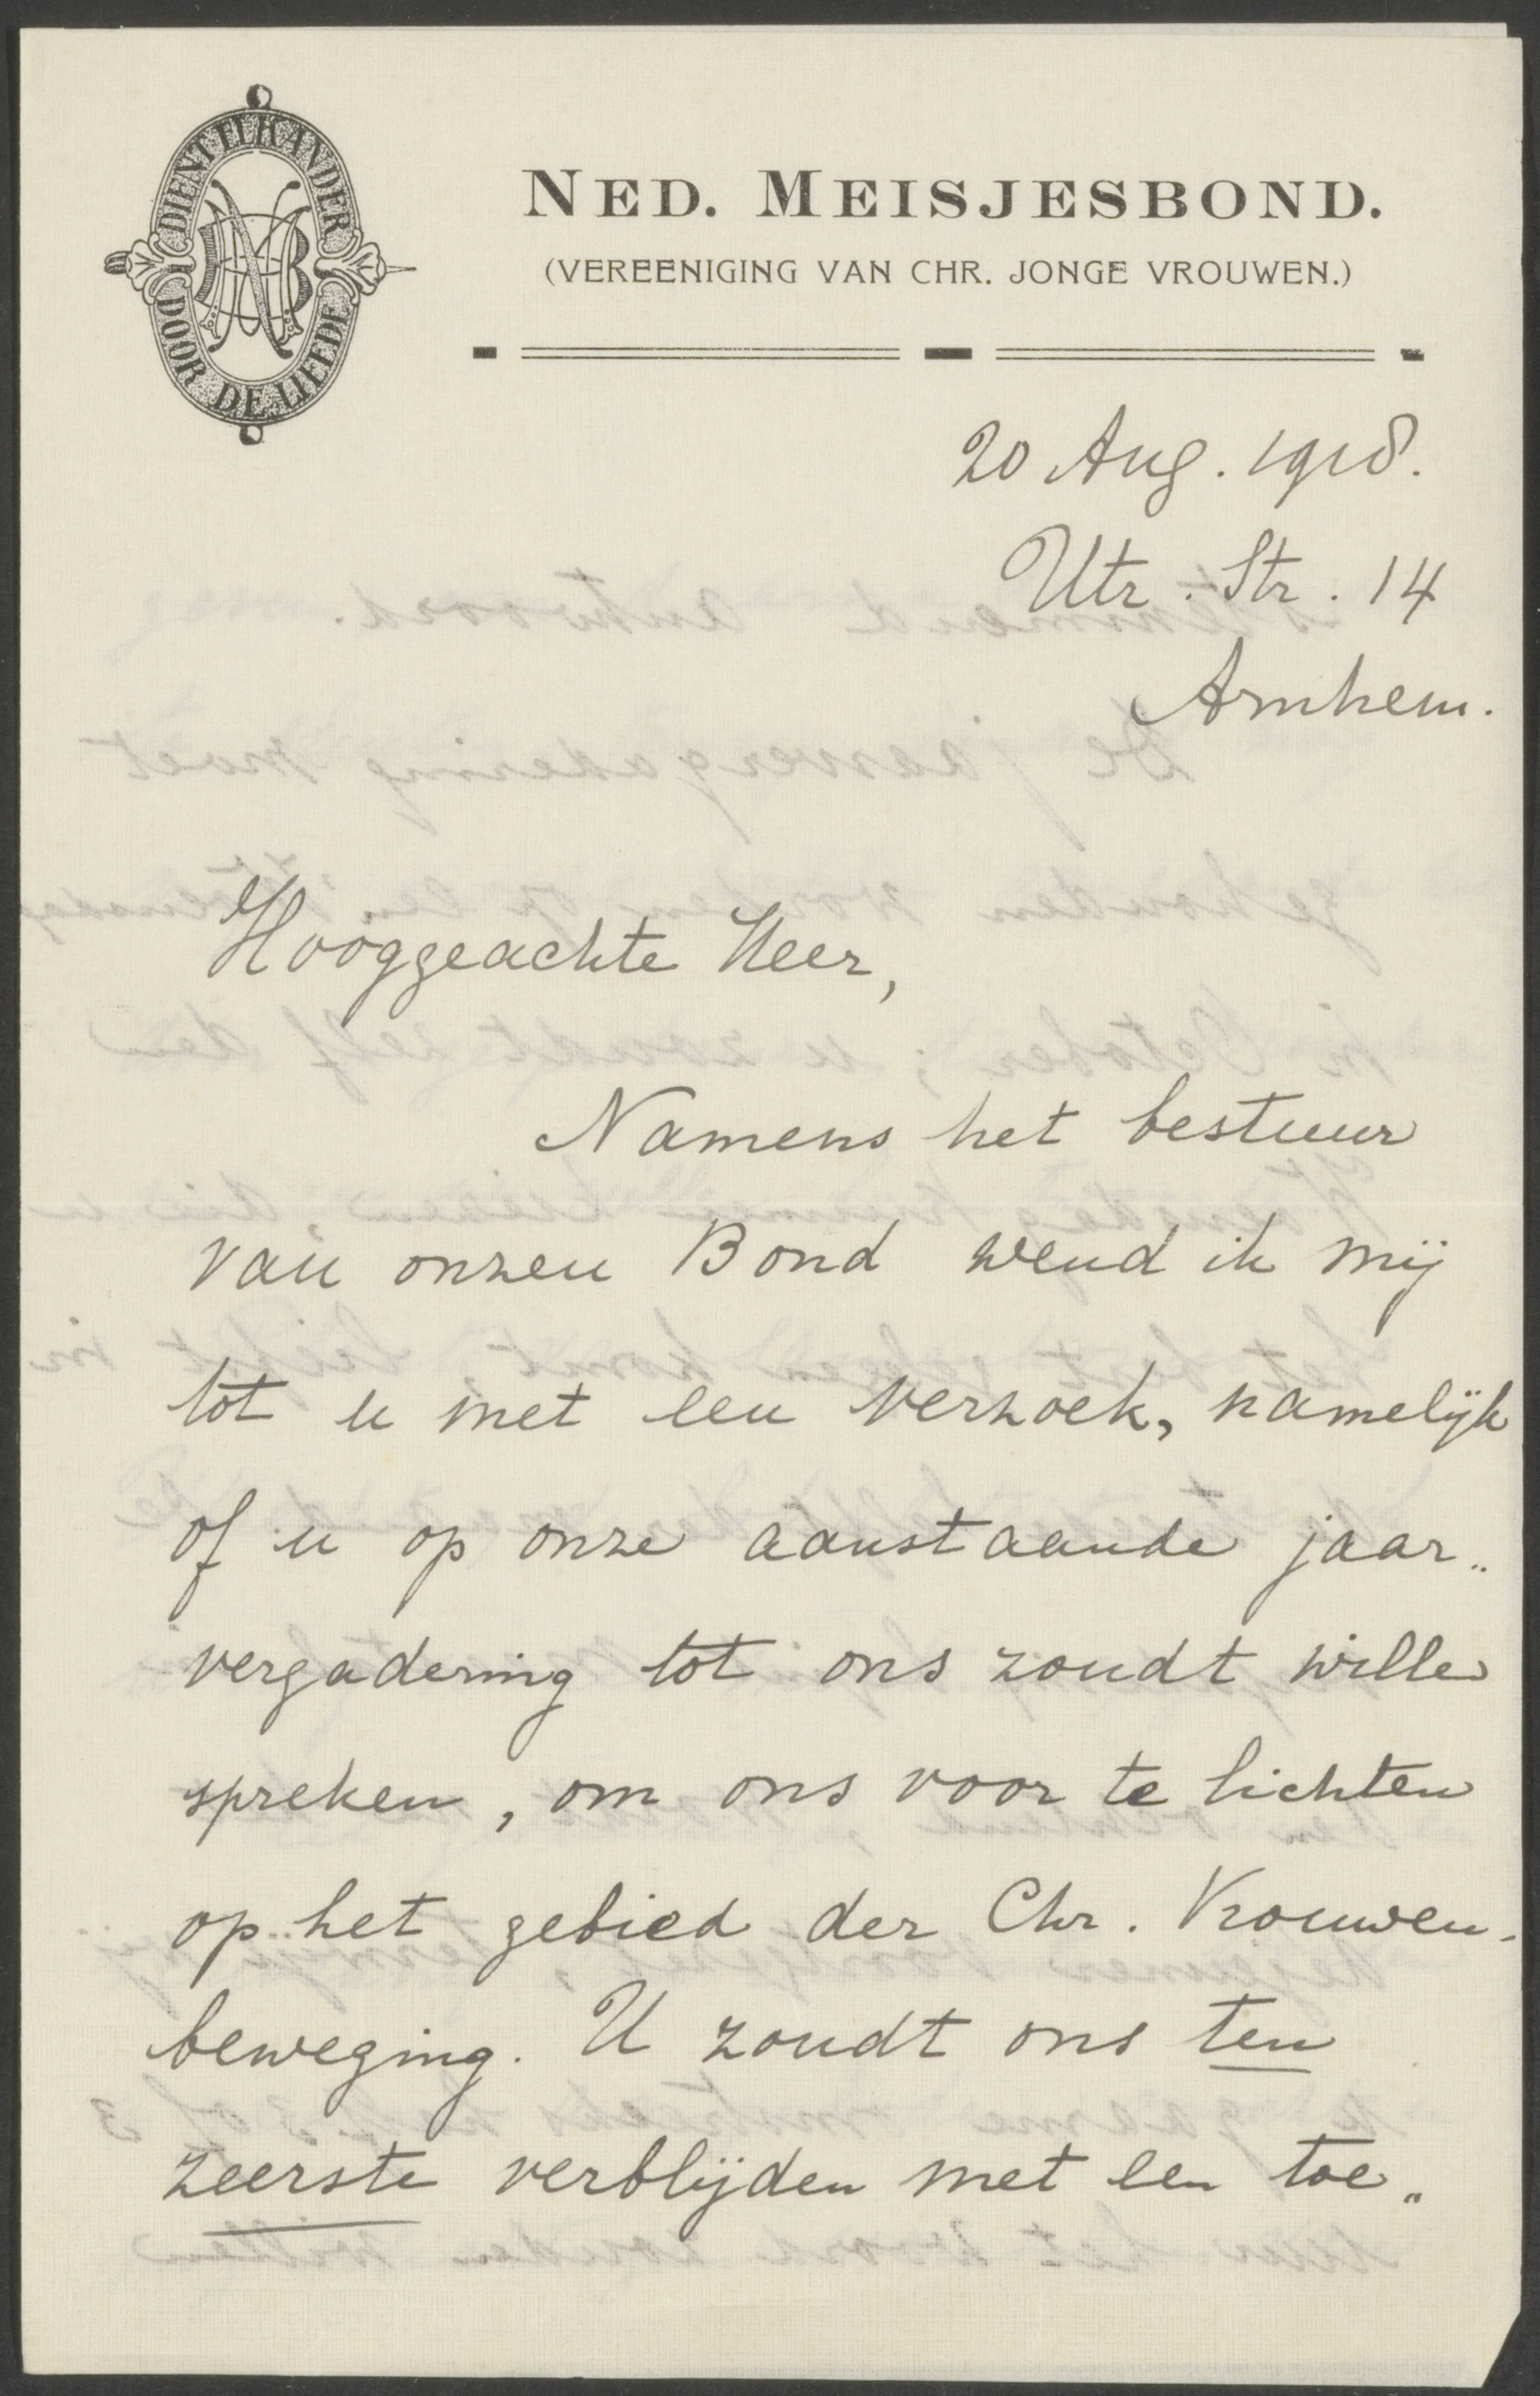 DIENT ELKANDER
DOOR DE LIEFDE
NMB
NED. MEISJESBOND.
(VEREENIGING VAN CHR. JONGE VROUWEN.)
20 Aug. 1918.
Utr. Str. 14
Arnhem.
Hooggeachte Heer,
Namens het bestuur
van onzen Bond wend ik mij
tot u met een verzoek, namelijk
of u op onze aanstaande jaar„
vergadering tot ons zoudt willen
spreken, om ons voor te lichten
op het gebied der Chr. Vrouwen-
beweging. U zoudt ons ten
zeerste verblijden met een toe„